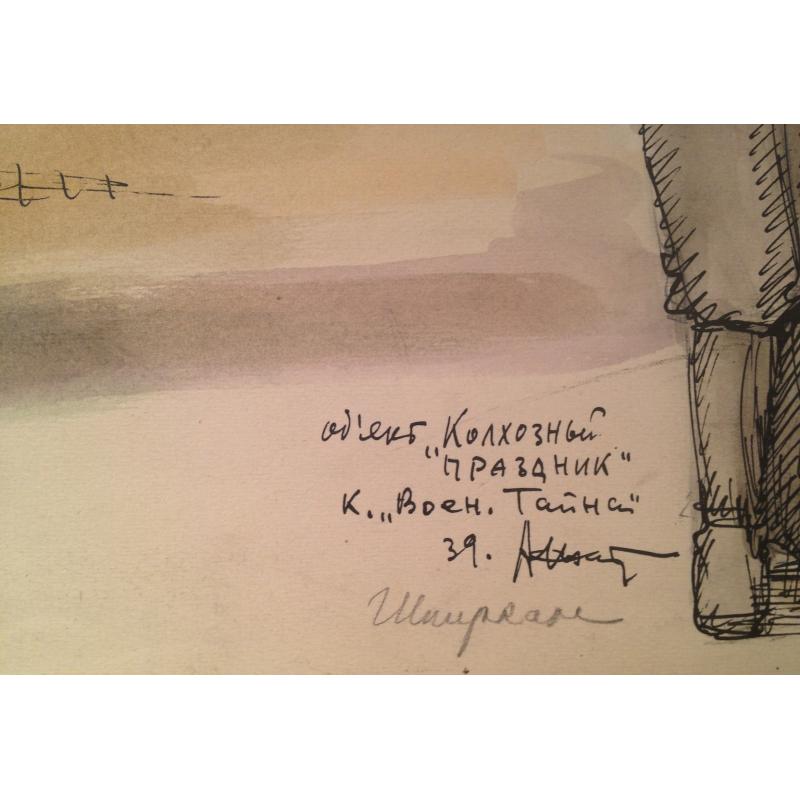 об'ект „Колхозный
"ПРАЗДНИК"
К. „Воен. Тайна"
39.